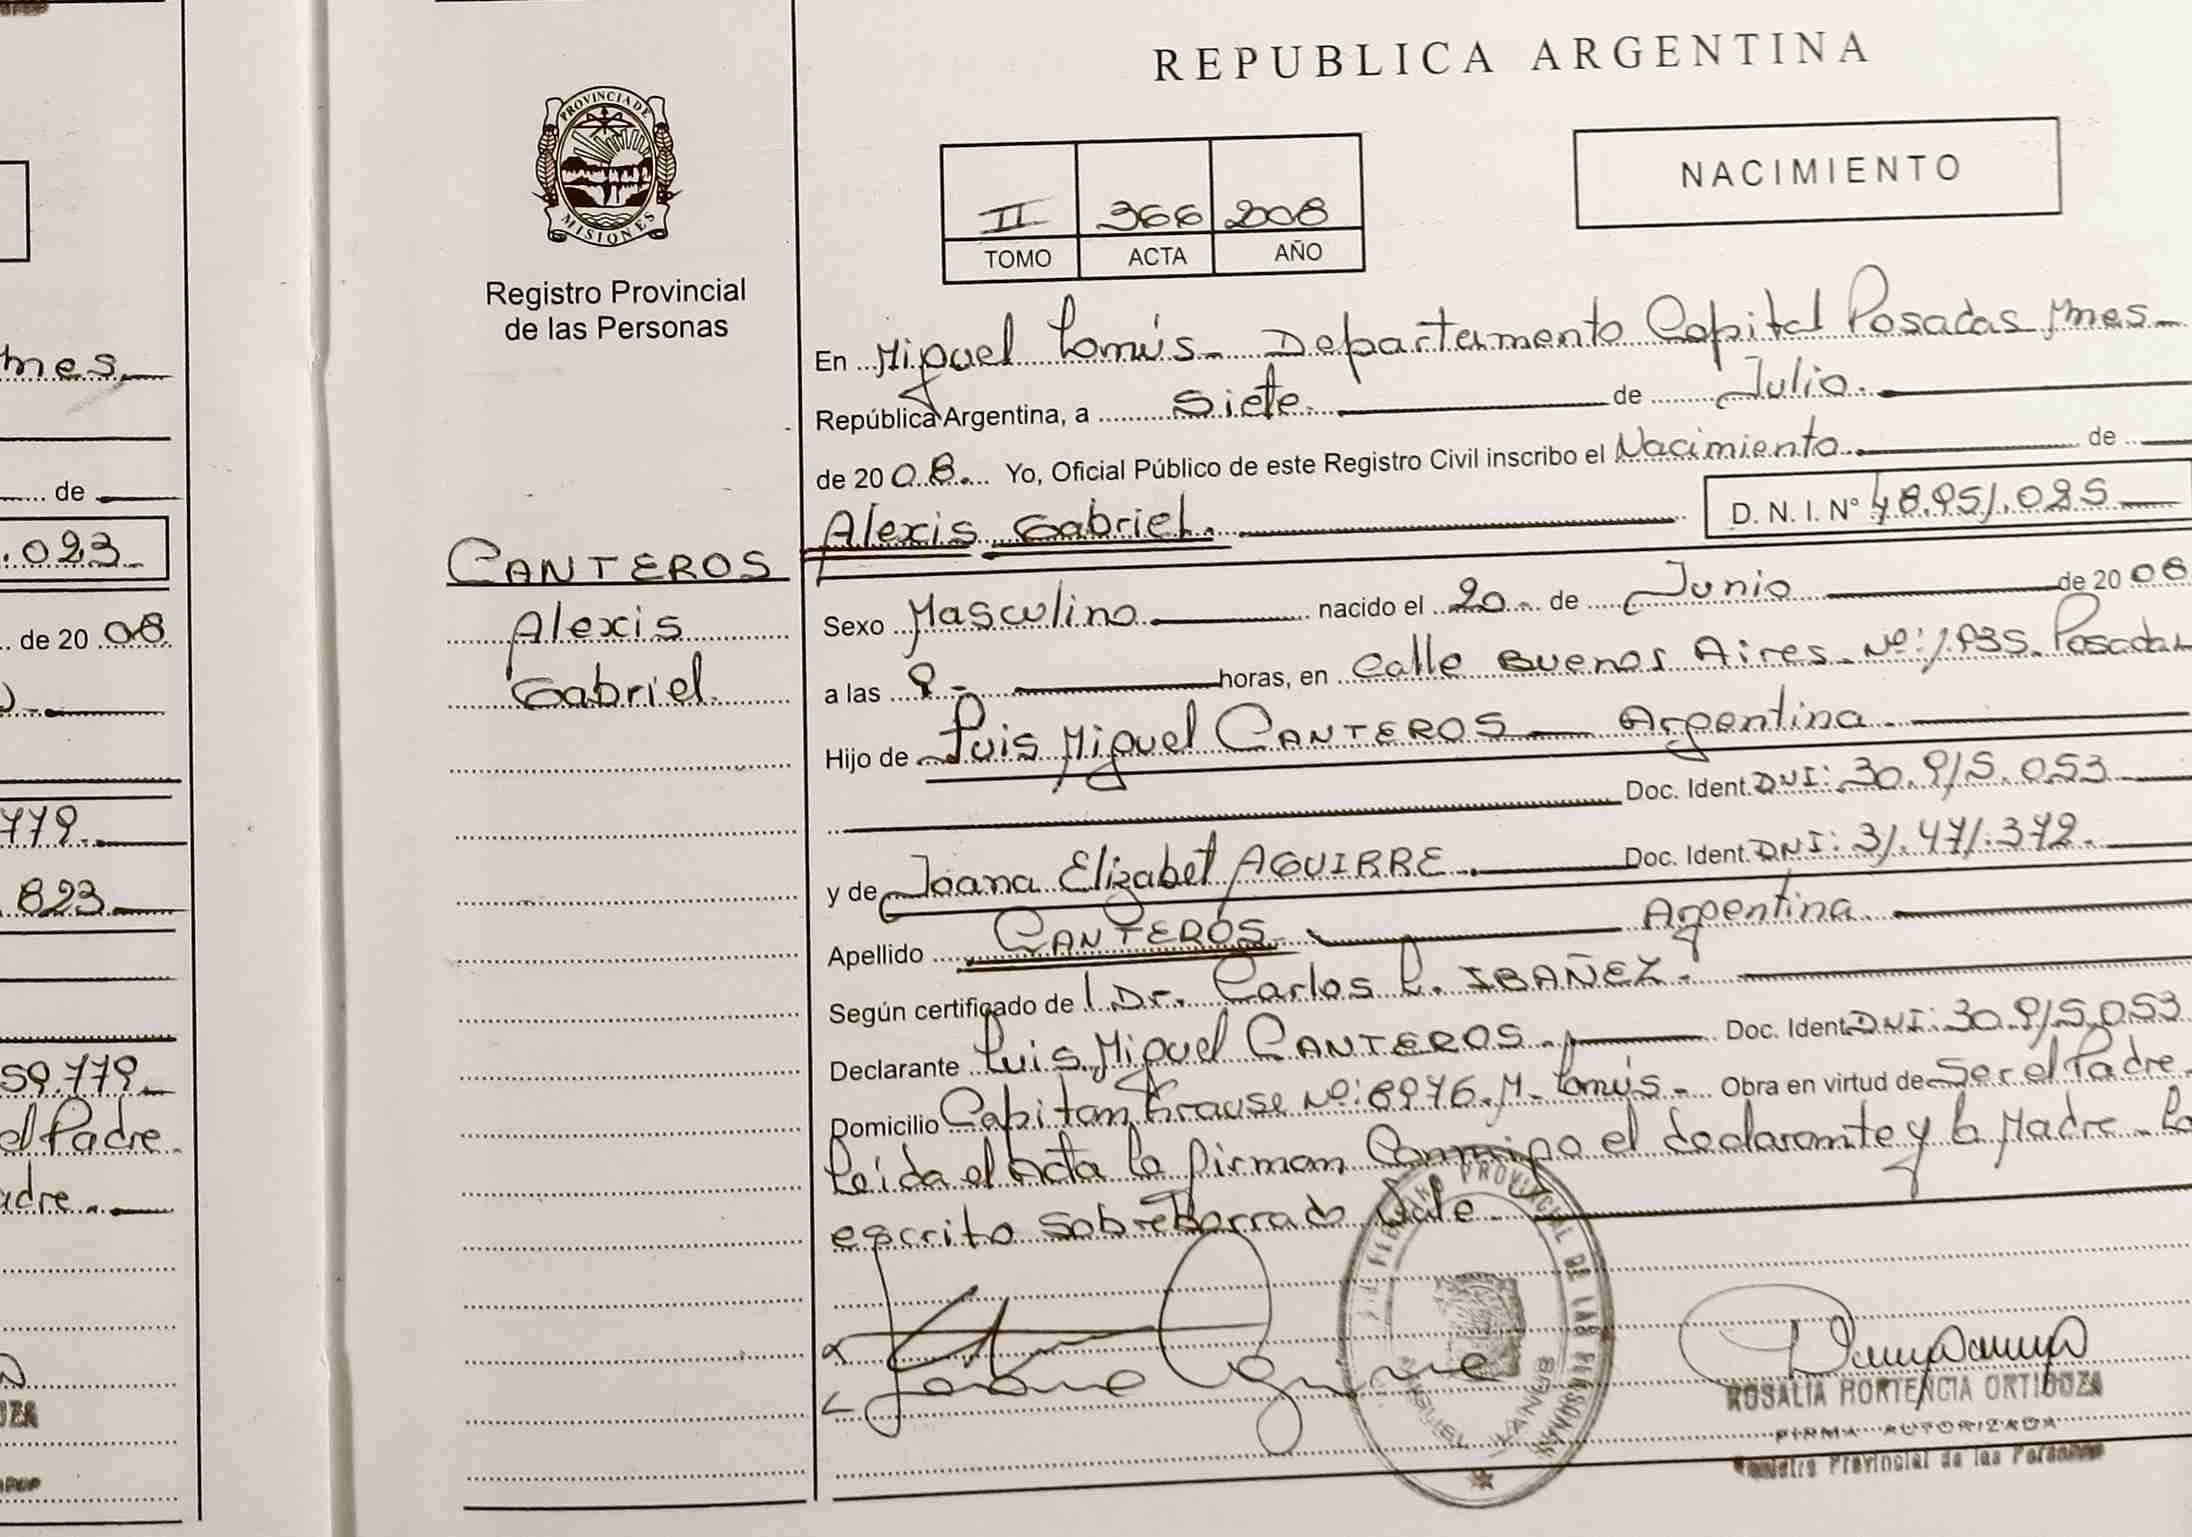 REPUBLICA ARGENTINA
PROVINCIA DE
MISIONES
Registro Provincial
de las Personas
II 366 2008
TOMO ACTA AÑO
NACIMIENTO
En Miguel Lanús - Departamento Capital Posadas Mnes -
República Argentina, a Siete. de Julio.
de 2008. Yo, Oficial Público de este Registro Civil inscribo el Nacimiento. de
Alexis Gabriel. D. N. I. Nº 48.951.025
CANTEROS
Alexis
Gabriel.
Sexo Masculino nacido el 20 - de Junio de 2008
a las 9 - horas, en Calle Buenos Aires - Nº: 1.935. Posadas
Hijo de Luis Miguel CANTEROS - Argentina -
Doc. Ident. DNI: 30.915.053
y de Joana Elizabet AGUIRRE. Doc. Ident. DNI: 31.471.372.
Apellido CANTEROS - Argentina.
Según certificado de Dr. Carlos L. IBAÑEZ.
Declarante Luis Miguel CANTEROS. Doc. Ident. DNI: 30.915.053
Domicilio Capitan Krause Nº: 6976. M. Lanús - Obra en virtud de Ser el Padre.
Leída el Acta la firman Conmigo el declarante y la Madre - Lo
escrito sobreborrado Vale -
REGISTRO PROVINCIAL DE LAS PERSONAS
MIGUEL LANUS
ROSALIA HORTENCIA ORTIGOZA
FIRMA AUTORIZADA
Registro Provincial de las Personas
mes.
de
.023
de 2008
779.
823
59.779
el Padre.
adre.